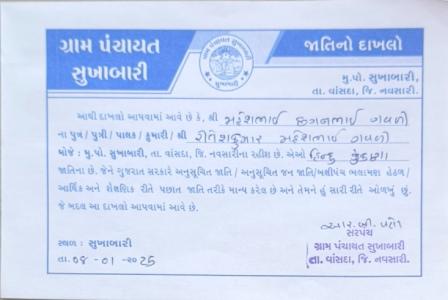 ગ્રામ પંચાયત
સુખાબારી
જાતિનો દાખલો
મુ.પો. સુખાબારી,
તા. વાંસદા, જિ. નવસારી.
આથી દાખલો આપવામાં આવે છે કે, શ્રી મહેશભાઈ છગનભાઈ ગવળી
ના પુત્ર / પુત્રી / પાલક / કુમારી / શ્રી રીતેશકુમાર મહેશભાઈ ગવળી
મોજે : મુ.પો. સુખાબારી, તા. વાંસદા, જિ. નવસારીના રહીશ છે. એઓ હિન્દુ કુંકણા
જાતિના છે. જેને ગુજરાત સરકારે અનુસુચિત જાતિ / અનુસુચિત જન જાતિ/બક્ષીપંચ ભલામણ હેઠળ/
આર્થિક અને શૈક્ષણિક રીતે પછાત જાતિ તરીકે માન્ય કરેલ છે અને તેમને હું સારી રીતે ઓળખું છું.
જે બદલ આ દાખલો આપવામાં આવે છે.
સ્થળ : સુખાબારી
તા. 08 - 01 -૨૦25
સરપંચ
ગ્રામ પંચાયત સુખાબારી
તા. વાંસદા, જિ. નવસારી.